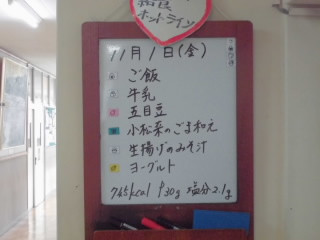 給食
ホットライン
11月1日(金)
ご飯
牛乳
五目豆
小松菜のごま和え
生揚げのみそ汁
ヨーグルト
745kcal P30g 塩分2.1g